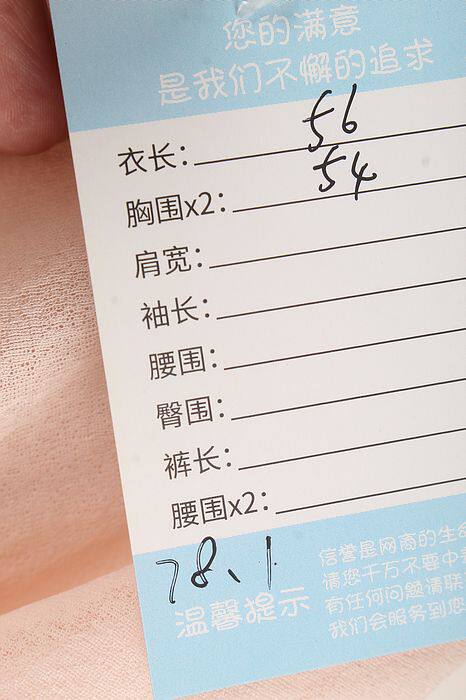 您的满意
是我们不懈的追求
衣长: 56
胸围x2: 54
肩宽:
袖长:
腰围:
臀围:
裤长:
腰围x2:
78、1
温馨提示
信誉是网商的生命
请您千万不要中
有任何问题请联
我们会服务到您